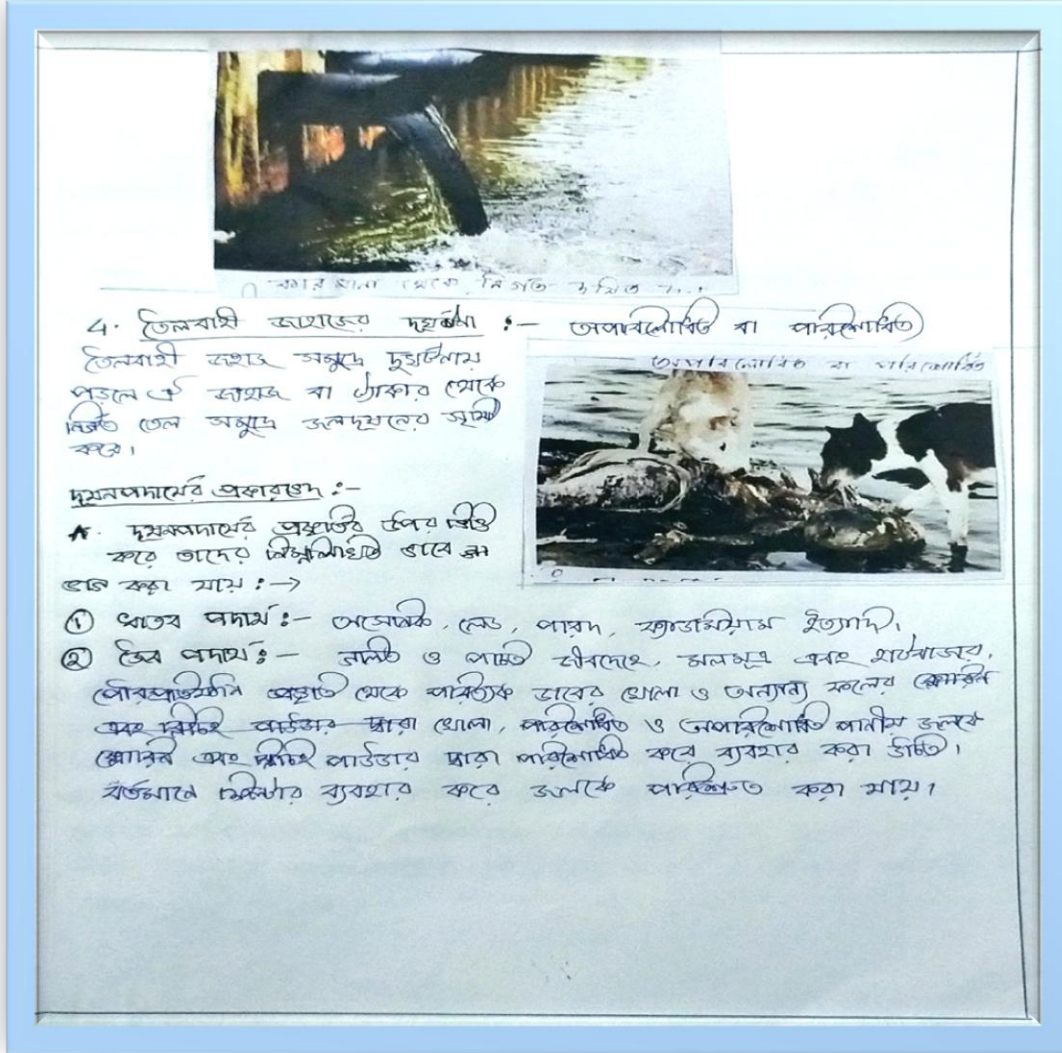 কারখানা থেকে নির্গত দূষিত
4. তৈলবাহী জাহাজের দুর্ঘটনা :- অপরিশোধিত বা পরিশোধিত
অপরিশোধিত বা পরিশোধিত
তৈলবাহী জাহাজ সমুদ্রে দুর্ঘটনায়
পড়লে ঐ জাহাজ বা ট্যাঙ্কার থেকে
নির্গত তেল সমুদ্রে জলদূষনের সৃষ্টি
করে।
দূষনপদার্থের প্রকারভেদ :-
A. দূষনপদার্থের প্রকৃতির উপর ভিত্তি
করে তাদের নিম্নলিখিত ভাবে
ভাগ করা যায় :→
① ধাতব পদার্থ :- আর্সেনিক, লেড, পারদ, ক্যাডমিয়াম ইত্যাদি।
② জৈব পদার্থ :- গলিত ও পচিত জীবদেহ, মলমূত্র এবং হাটবাজার,
প্রভৃতি থেকে পরিত্যক্ত ডাবের খোলা ও অন্যান্য ফলের
এবং ব্লিচিং পাউডার দ্বারা খোলা, পরিশোধিত ও অপরিশোধিত পানীয় জলকে
ক্লোরিন এবং ব্লিচিং পাউডার দ্বারা পরিশোধিত করে ব্যবহার করা উচিত।
বর্তমানে ফিল্টার ব্যবহার করে জলকে পরিশ্রুত করা যায়।